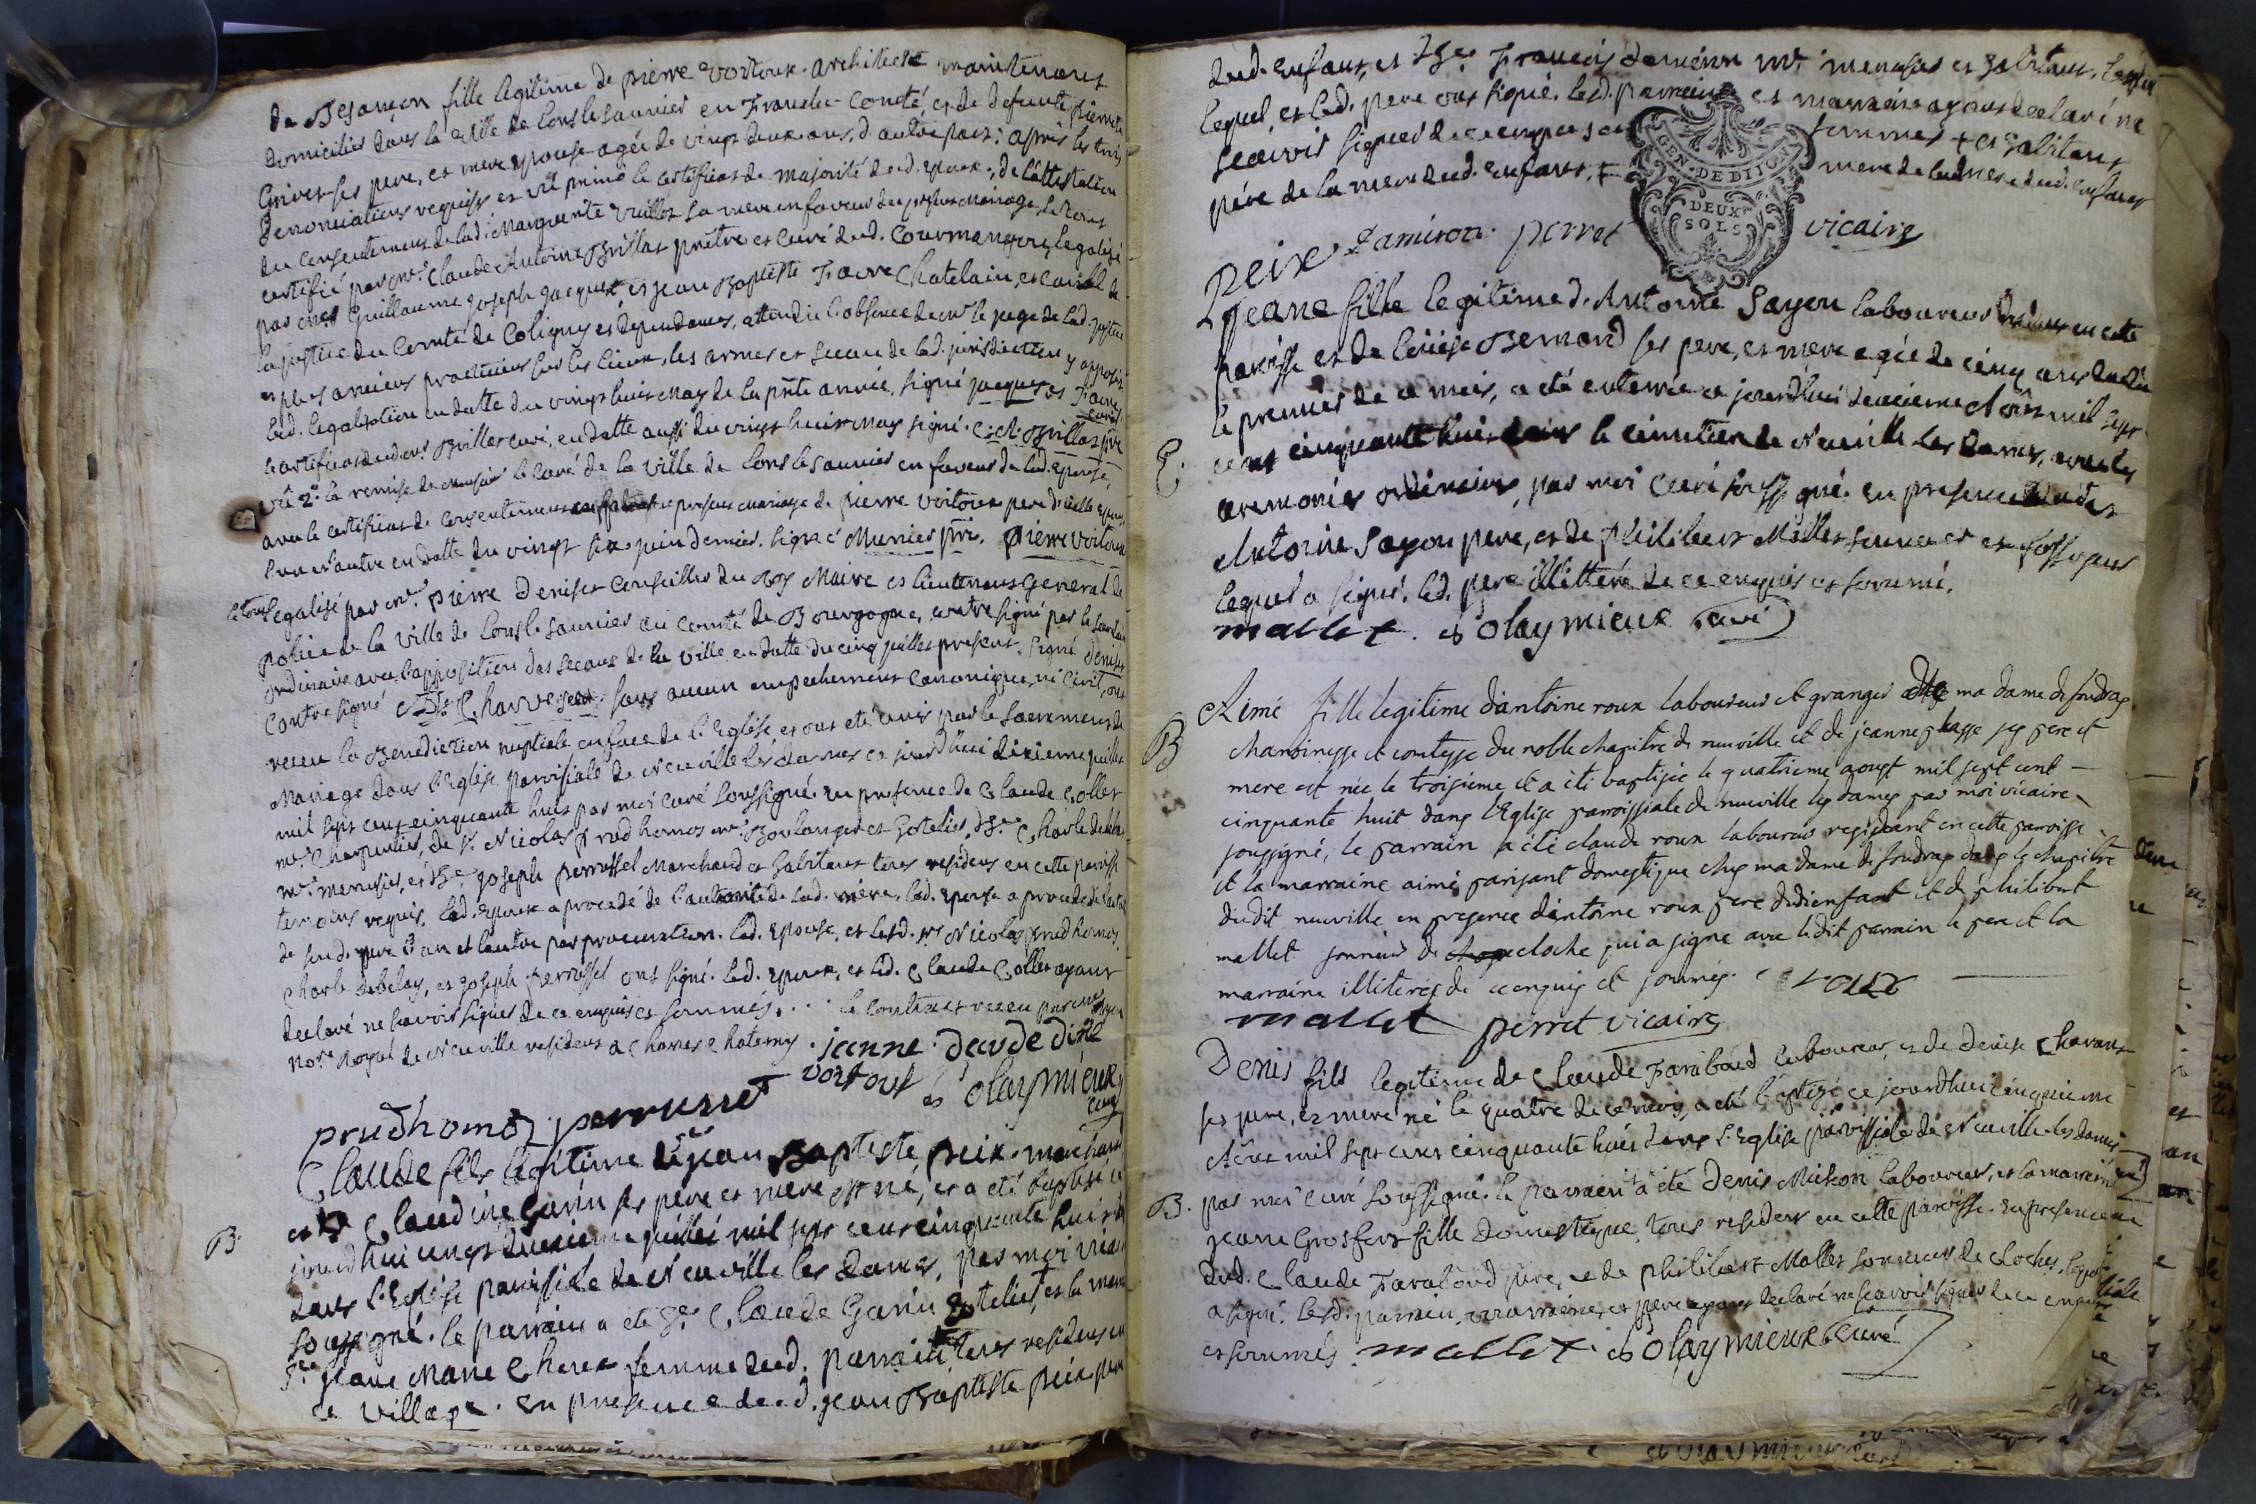 de Besançon fille legitime de pierre voitoux architecte maintenant
domiciliés dans la ville de Lons le Saunier en Franche-Comté, et de defunte pierrette
Grivet ses pere, et mere epouse agée de vingt deux ans, d'autre part: après les trois
denonciations requises et vû primò le certificat de majorité dud. epoux, de l'attestation
du consentement de lad. Marguerite Vuillot sa mere en faveur du present Mariage, le tout
certifié par mr. Claude Antoine Brillat prêtre et curé dud. Courmangoux, legalisé
par mes Guillaume joseph jacquet et jean Baptiste Favre Chatelain, et
la justice du Comté de Coligny et dependances, attendu l'absence de mr. le juge de lad. justice
et plus anciens practiciens sur les lieux, les armes et sceau de lad. jurisdiction y apposés
lad. legalisation en datte du vingt huit May de la prête année, signé jacquet et Favre
le certificat dud. mr. Brillat curé, en datte aussi du vingt huit May signé. C. A. Brillat ptre curé
vû 2°. la remise de monsieur le curé de la ville de Lons le Saunier en faveur de lad. epouse,
avec le certificat de consentement au present mariage de pierre voitoux pere d'icelle epouse
l'un et l'autre en datte du vingt six juin dernier, signé Munier ptre. pierre voitoux
le tout legalisé par mr. pierre Deniset conseiller du Roy Maire et lieutenant general de
police de la ville de Lons le Saunier au Comté de Bourgogne, contresigné par le
ordinaire avec l'apposition des sceaux de la ville en datte du cinq juillet present. signé deniset
contresigné sans aucun empechement canonique, ni civil, ont
receu la Benediction nuptiale en face de l'Eglise, et ont eté unis par le sacrement de
Mariage dans l'Eglise paroissiale de Neuville les dames ce jourd'huui dixieme juillet
mil sept cent cinquante huit par moi curé soussigné. en presence de Claude Collet
mr. Charpentier, de sr. Nicolas prudhomes mr. Boulanger et hotelier, Charle debelay
mr. menusier, et joseph perrussel Marchand et habitans tous residens en cette paroisse
temoins requis. led. epoux a procedé de l'autorité de sad. mère, lad. epouse a procedé de l'autorité
de sond. pere l'un et l'autre par procuration. lad. epouse, et lesd. srs Nicolas prudhomes,
Charle debelay, et joseph perrussel ont signé. led. epoux, et led. Claude Collet ayant
declaré ne sçavoir signer de ce enquis et sommés. le contract receu par me
nore. Royal de Neuville residens a jeanne
voitout Olaymieux curé
prudhomes perrussel
Claude fils legitime de jean Baptiste peix marchand
et de Claudine Garin ses père et mere est né, et a été baptisé ce
jourd'hui vingt deuxieme juillet mil sept cent cinquante huit
dans l'Eglise paroissiale de Neuville les dames, par moi vicaire
soussigné. le parrain a été sr. Claude Garin hotelier, et la marraine
B.
jeane Marie femme dud. parrain tous residens en
ce village. en presence dud. jean Baptiste peix pere
dud. enfant, et sr. François damiron mr. menusier et habitant,
lequel, et led. pere ont signé. lesd. parrain et marraine ayant declaré ne
scavoir signer de ce enquis et sommés + et habitant
pére de la mere dud. enfant. + mere de lad. mere dud. enfant
GEN. DE DIJON
DEUX SOLS
peix damiron. perret vicaire
jeane fille legitime d'Antoine Sayon laboureur residens en cette
paroisse et de Bernard ses pere, et mere agée de cinq ans
le premier de ce mois, a été enterrée ce jourd'hui deuxieme Aôut mil sept
E.
cent cinquante huit dans le cimetiere de Neuville les dames, avec les
ceremonies ordinaires, par moi curé soussigné. en presence dudit
Antoine Sayon pere, et de philibert Mallet sonneur et fossoyeur
lequel a signé. led. pere illitteré de ce enquis et sommé.
mallet. Olaymieux curé
Aimé fille legitime d'antoine roux laboureur et granger de ma dame de fondras
B
chanoinesse et comtesse du noble chapitre de neuville et de jeanne ses pere et
mere est née le troisieme et a été baptisée le quatrieme aoust mil sept cent
cinquante huit dans l'Eglise parroissiale de neuville les dames par moi vicaire
soussigné, le parrain a été claude roux laboureur resident en cette paroisse
et la marraine aimé parisant domestique ches ma dame de fondras dans le chapitre
du dit neuville en presence d'antoine roux pere dudi enfant et de philibert
mallet sonneur de cloche qui a signe avec le dit parrain le pere et la
marraine illiterés de ce enquis et sommés. roux
mallet perret vicaire
Denis fils legitime de Claude Farabôud laboureur, et de Denise Chavant
ses pere, et mere né le quatre de ce mois, a été baptizé ce jourdhui cinquieme
Aôut mil sept cent cinquante huit dans l'Eglise paroissiale de Neuville les dames
B. par moi curé soussigné. le parrain a été Denis Michon laboureur, et la marraine
jeane Grosfort fille domestique tous residens en cette paroisse. en presence
dud. Claude Farabôud pere, et de philibert Mallet sonneur de cloches, lequel
a signé. lesd. parrain, marraine, et pere ayant declaré ne sçavoir signer de ce enquis
et sommés mallet. Olaymieux curé